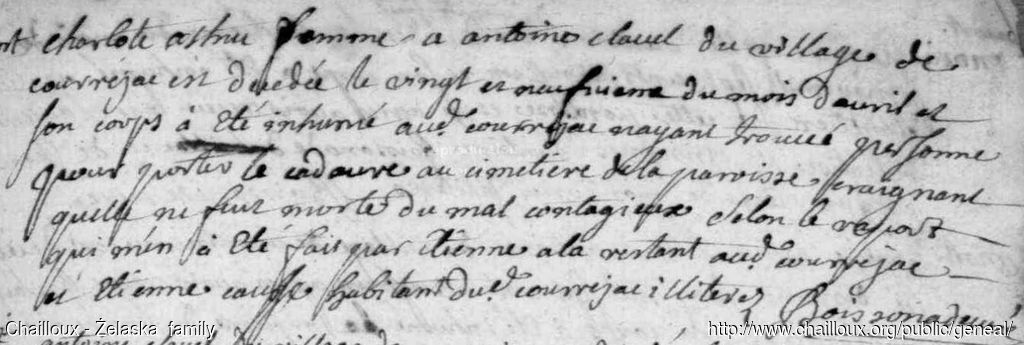 charlote astruc femme a antoine clauel du village de
courréjac est décédée le vingt et neufvieme du mois d'auril et
son corps à été inhumé aud. courréjac nayant trouué personne
pour porter le cadaure au cimetiere de la paroisse, craignant
quelle ne feut morte du mal contagieux selon le raport
qui m'en à été fait par Etienne ala restant aud. courréjac
et Etienne causse habitant dud. courréjac illiteres Boissonade
Chailloux - Żelaska family
http://www.chailloux.org/public/geneal/
antoine clauel du village de